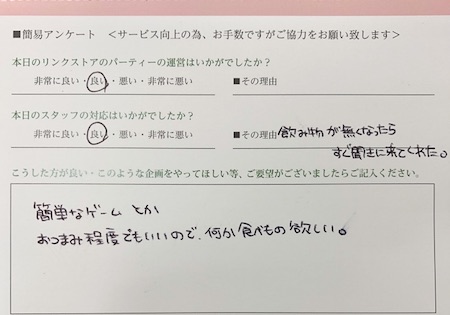 ■簡易アンケート ＜サービス向上の為、お手数ですがご協力をお願い致します＞
本日のリンクストアのパーティーの運営はいかがでしたか？
非常に良い・良い・悪い・非常に悪い ■その理由
本日のスタッフの対応はいかがでしたか？
非常に良い・良い・悪い・非常に悪い ■その理由 飲み物が無くなったら
すぐ聞きに来てくれた。
こうした方が良い・このような企画をやってほしい等、ご要望がございましたらご記入ください。
簡単なゲームとか
おつまみ程度でもいいので、何か食べもの欲しい。